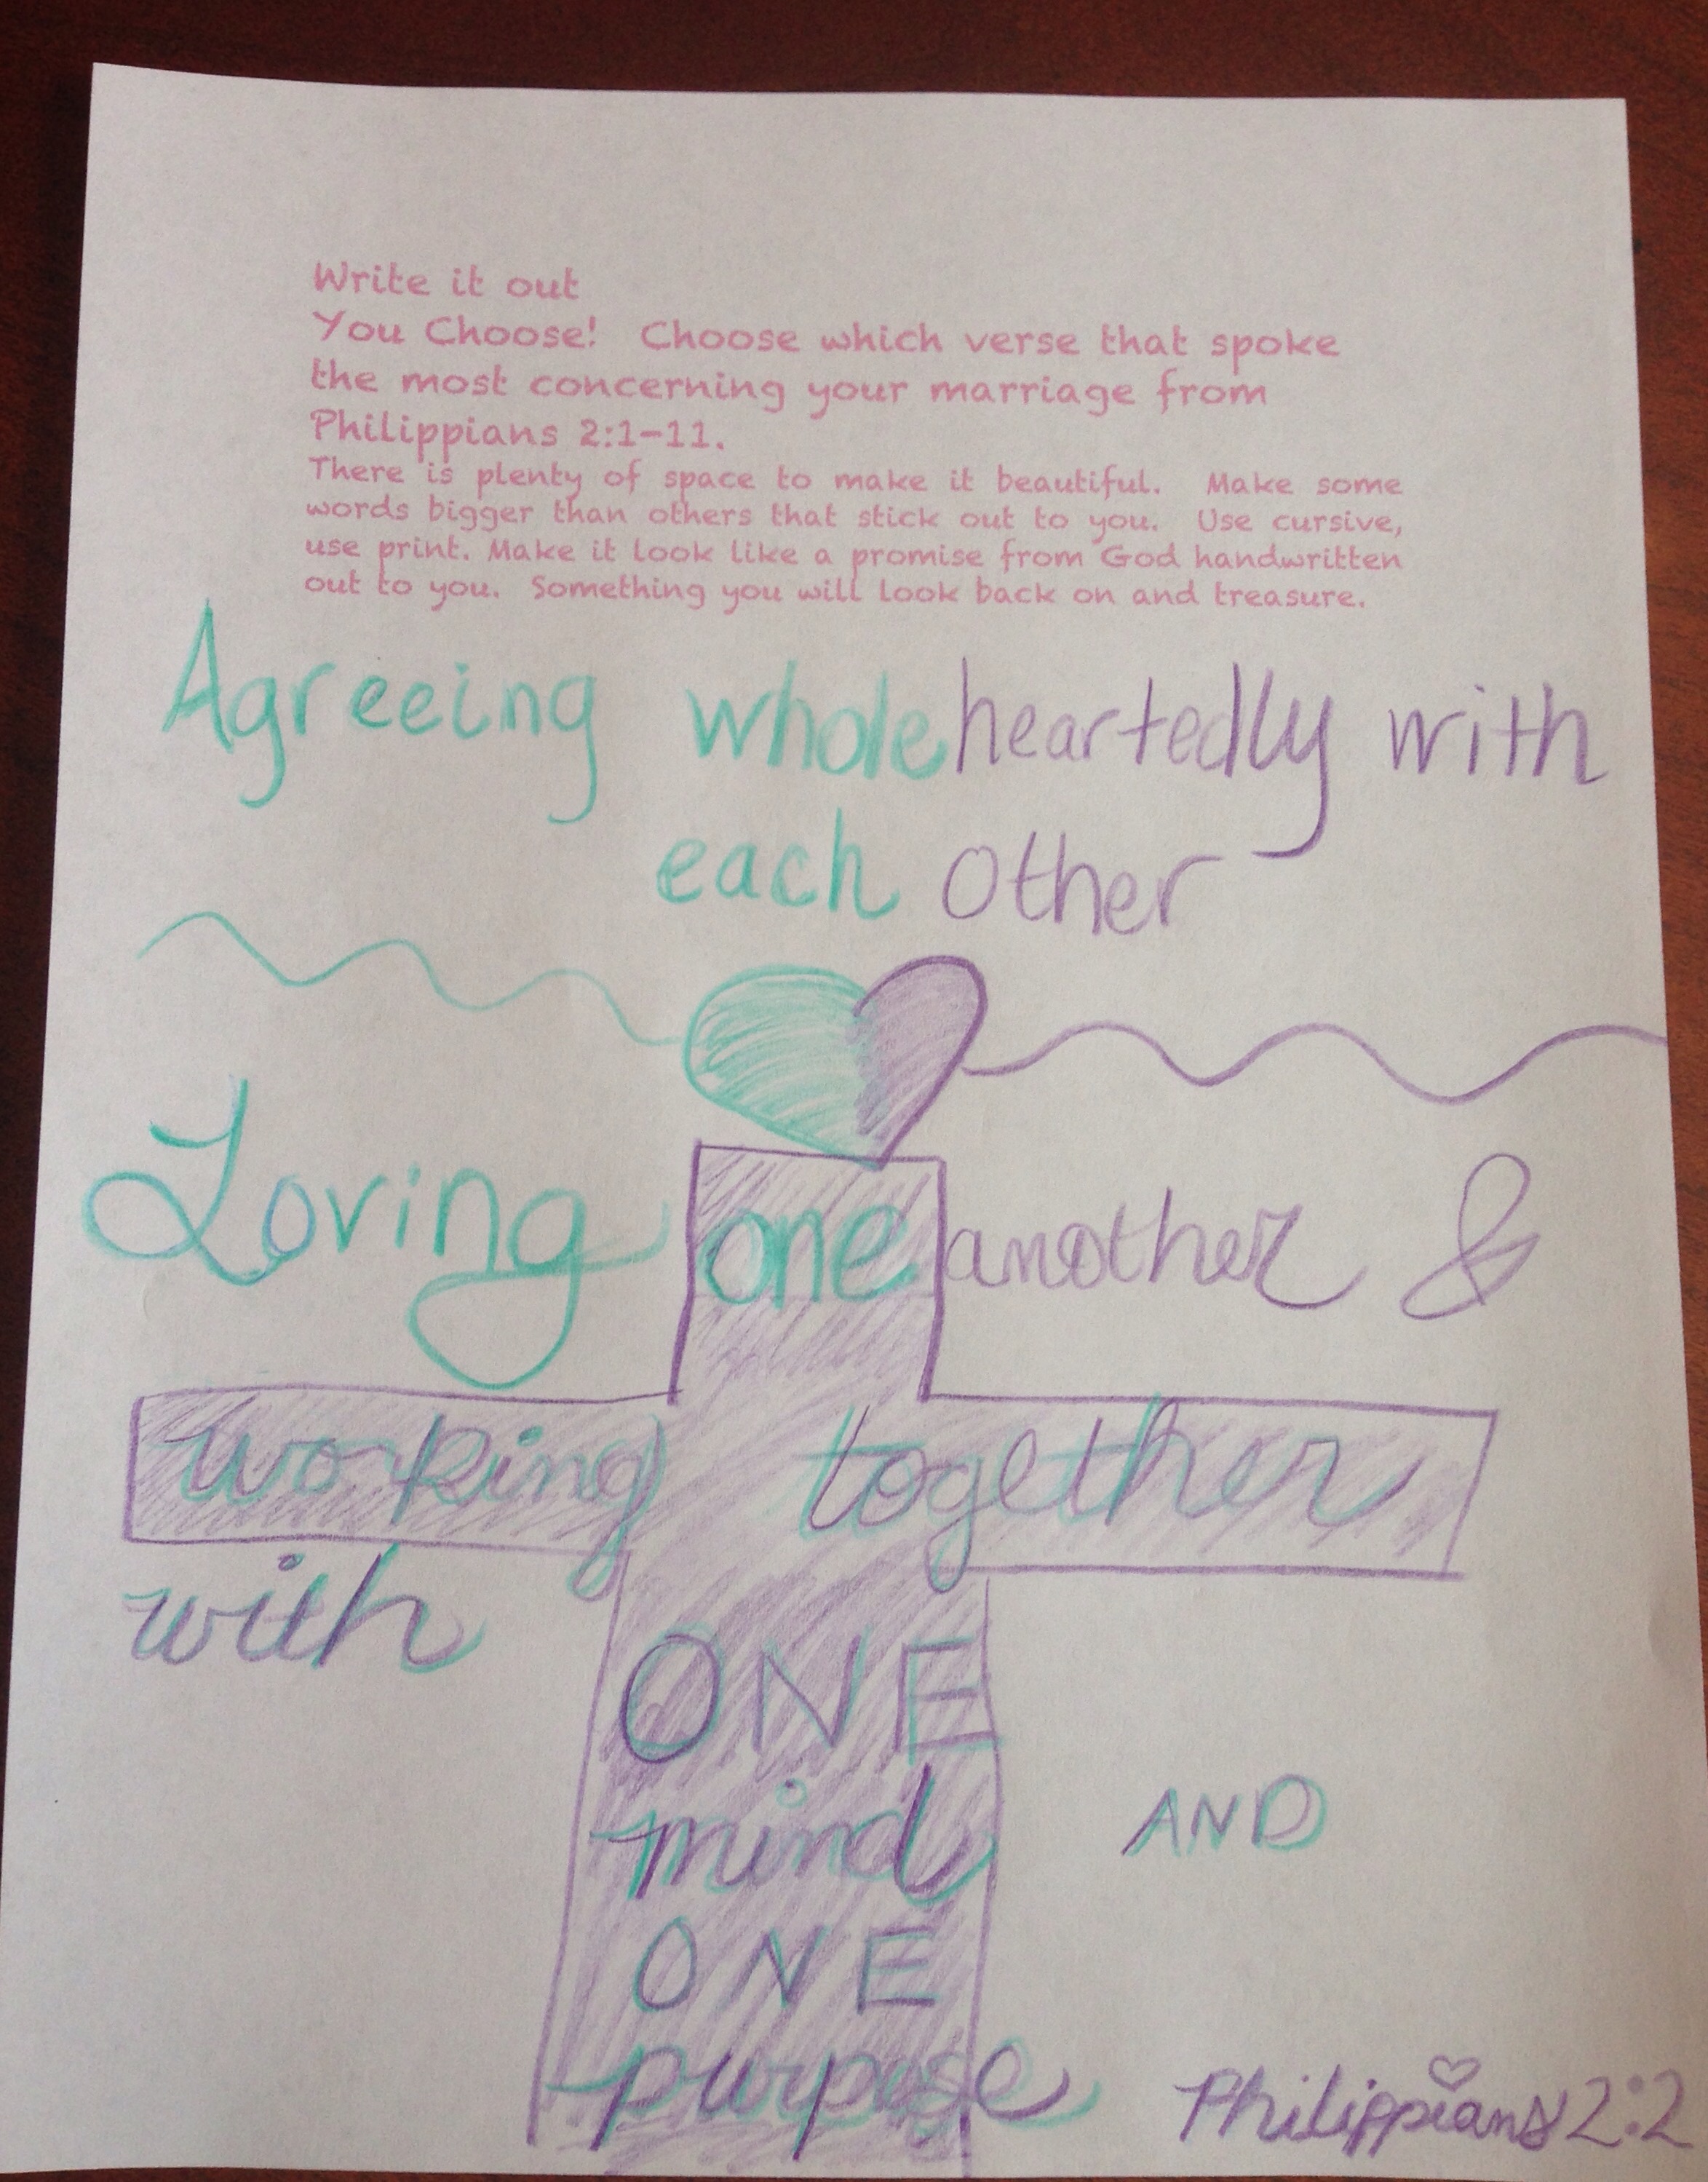 Write it out
You Choose! Choose which verse that spoke
the most concerning your marriage from
Philippians 2:1-11.
There is plenty of space to make it beautiful. Make some
words bigger than others that stick out to you. Use cursive,
use print. Make it look like a promise from God handwritten
out to you. Something you will look back on and treasure.
Agreeing wholeheartedly with
each other
Loving one another &
working together
with
ONE
mind AND
ONE
purpose
Philippians 2:2